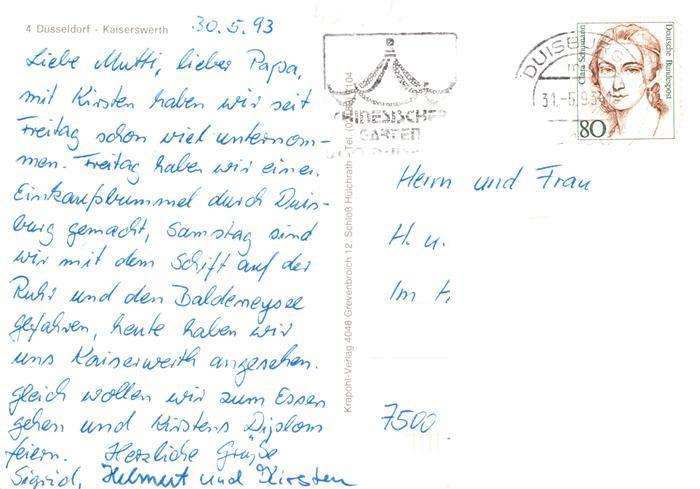 4 Düsseldorf - Kaiserswerth
30.5.93
Liebe Mutti, lieber Papa,
mit Kirsten haben wir seit
Freitag schon viel unternom-
men. Freitag haben wir einen
Einkaufsbummel durch Duis-
burg gemacht, Samstag sind
wir mit dem Schiff auf der
Ruhr und den Baldeneysee
gefahren, heute haben wir
uns Kaiserwerth angesehen.
gleich wollen wir zum Essen
gehen und Kirstens Diplom
feiern. Herzliche Grüße
Sigrid, Helmut und Kirsten
Krapohl-Verlag 4048 Grevenbroich 12, Schloß Hülchrath - Tel.
CHINESISCHER
GARTEN
DUISBURG
31.-5.93
Clara Schumann
Deutsche Bundespost
80
Herrn und Frau
H. u.
Im
7500